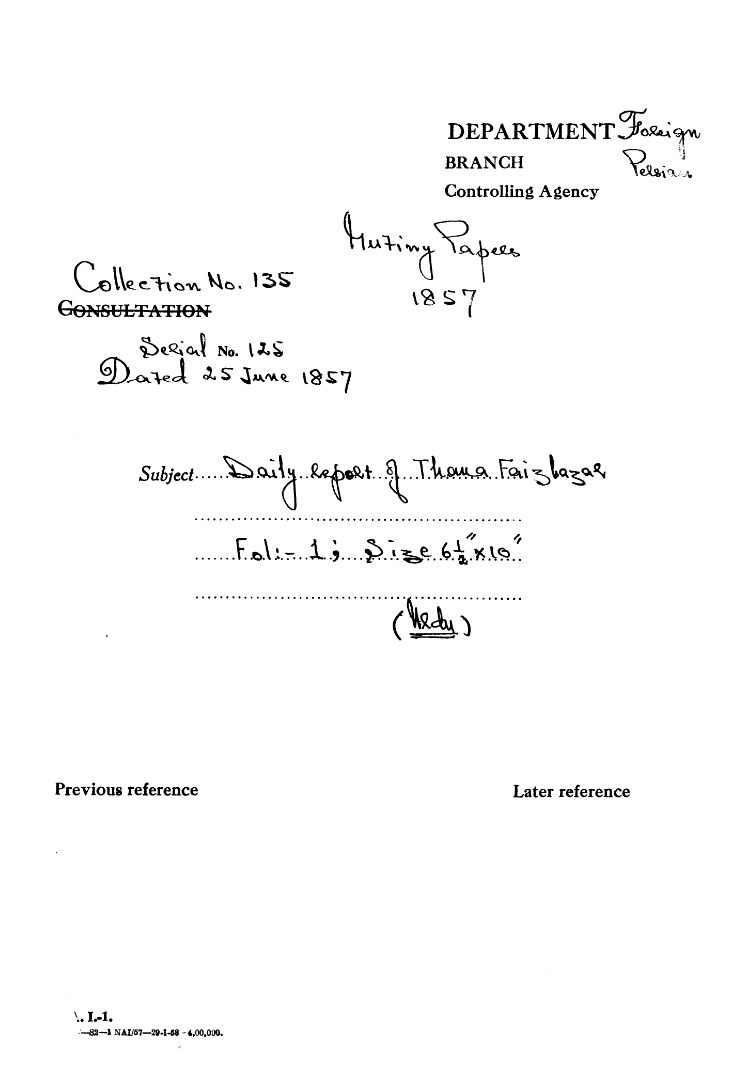 DEPARTMENT Foreign
BRANCH Persian
Controlling Agency
Mutiny Papers
1857
Collection No. 135
CONSULTATION
Serial No. 125
Dated 25 June 1857
Subject Daily report of Thana Faizbazar
Fol:- 1; Size 6½" x 10"
(Urdu)
Previous reference
Later reference
I.-1.
—S2—1 NAI/57—29-1-58—4,00,000.